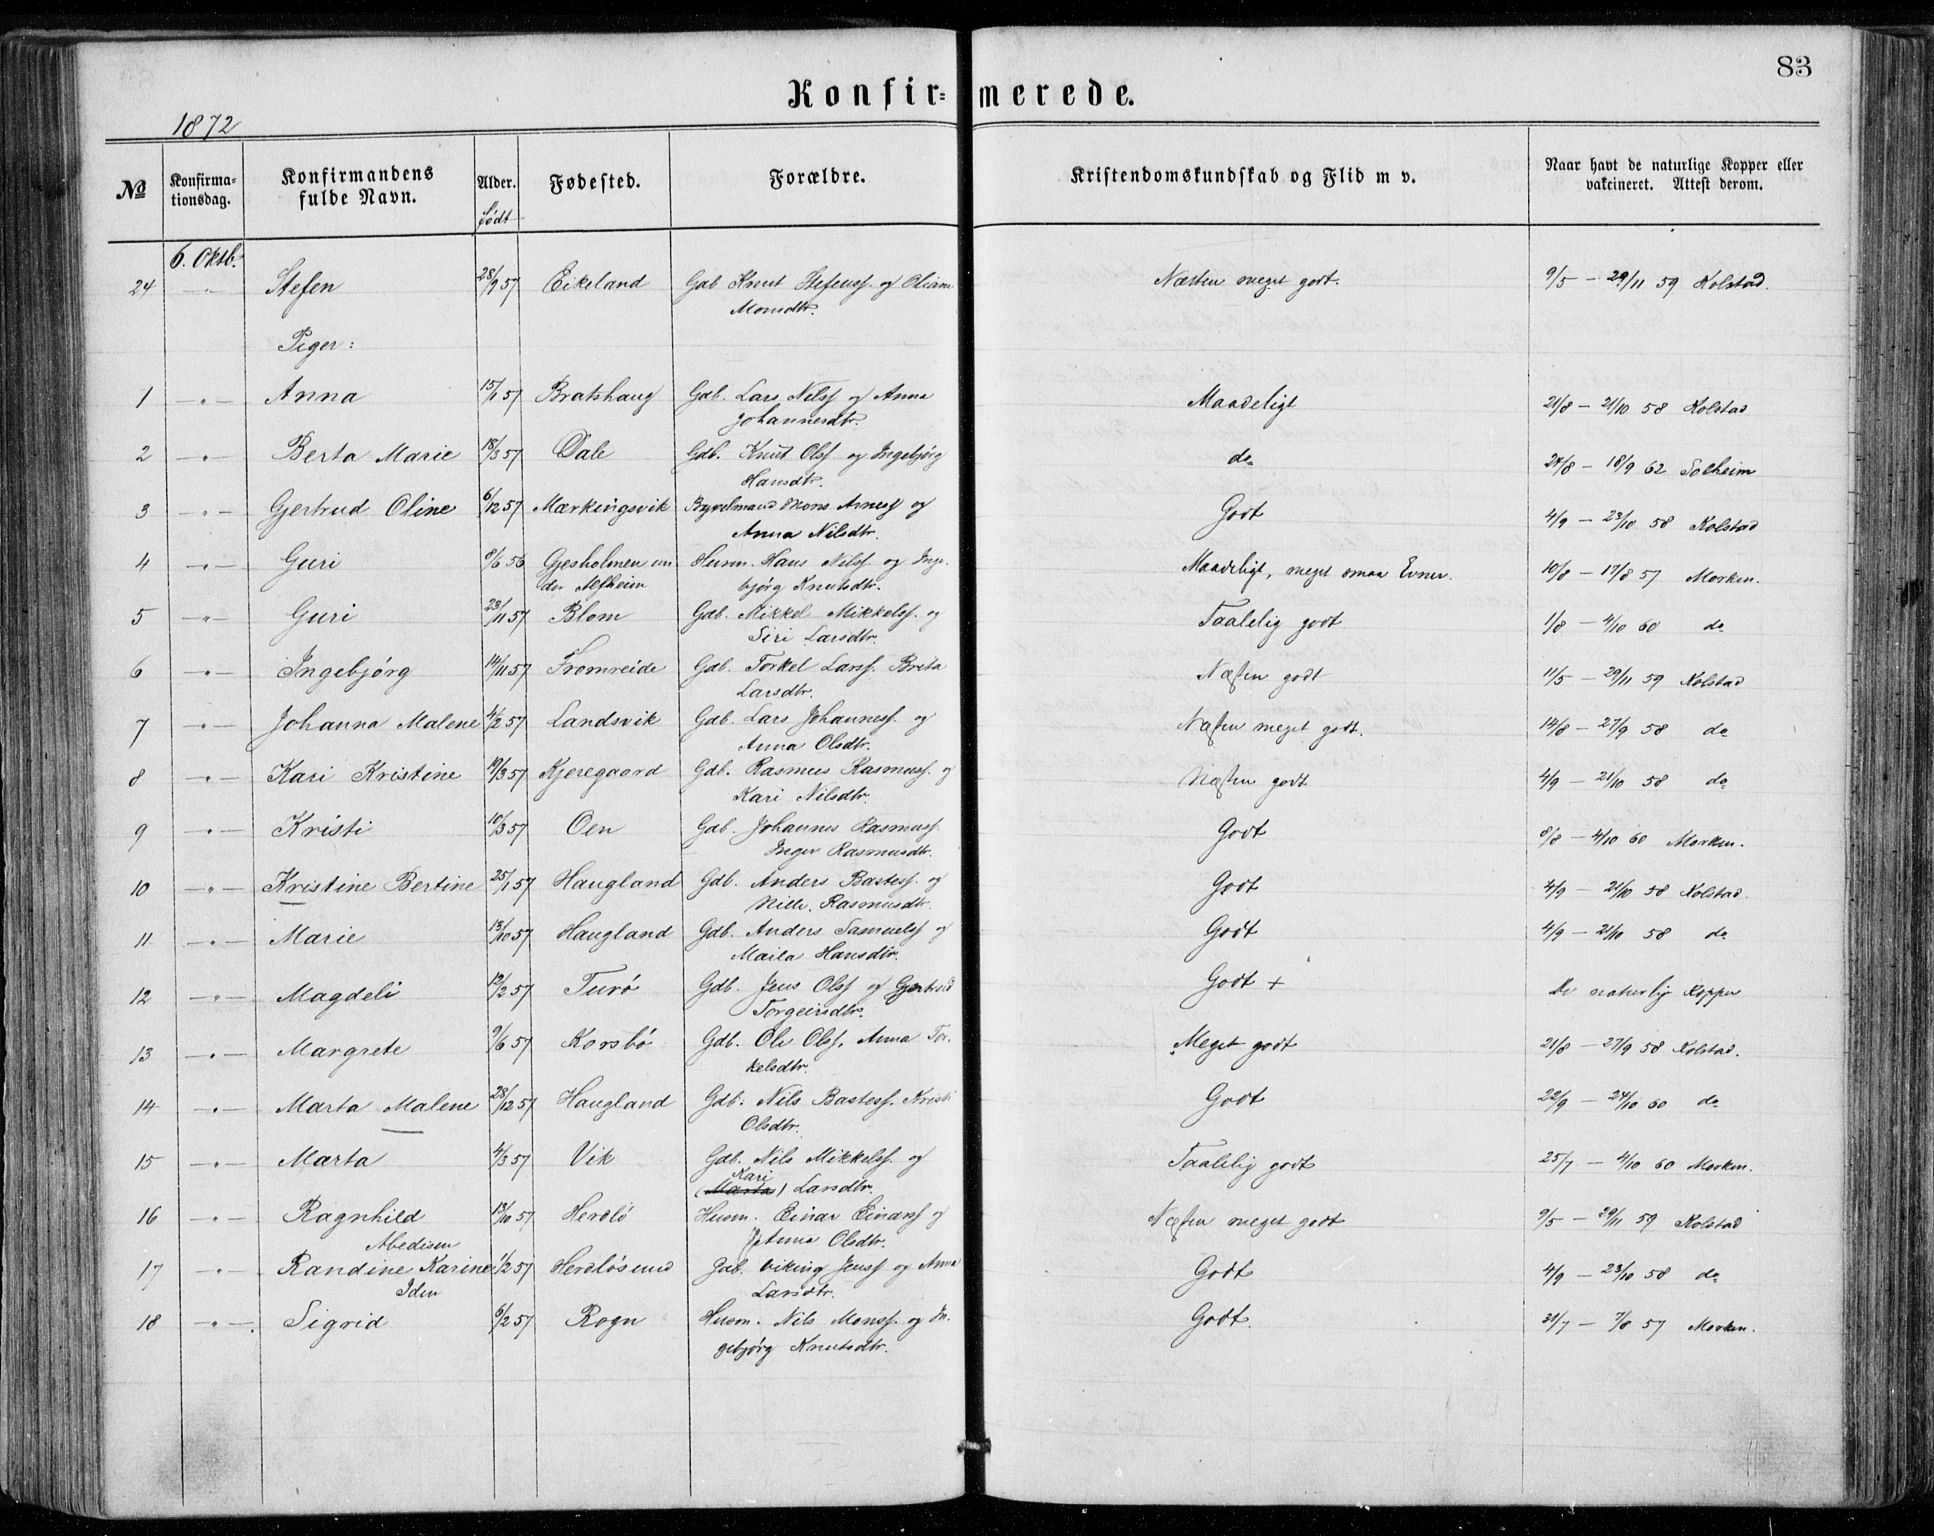 83
Konfir=merede.
1872
№ Konfirma-tionsdag. Konfirmandens fulde Navn. Alder. Født Fødested. Forældre. Kristendomskundskab og Flid m v. Naar havt de naturlige Kopper eller vakcineret. Attest derom.
6. Oktb.
24 -"- Stefen 28/9 57 Eikeland Gdb Knut Stefenss. og Oliane Næsten meget godt. 9/5 - 29/11 59 Kolstad.
Monsdtr.
Piger:
1 -"- Anna 15/1 57 Bratshaug Gdb. Lars Nilss. og Anna Maadeligt 21/8 - 21/10 58 Kolstad
Johannesdtr.
2 -"- Berta Marie 18/3 57 Dale Gdb. Knut Olss. og Ingebjørg do 24/8 - 18/9 62 Solheim
Hansdtr.
3 -"- Gjertrud Oline 6/12 57 Mærkingsvik Mons Arness. og Godt 4/9 - 23/10 58 Kolstad
Anna Nilsdtr.
4 -"- Guri 8/6 56 Gjesholmen un- Husm. Hans Nilss. og Inge- Maadeligt, meget smaa Evner. 10/8 - 17/8 57 Morken.
der Alfheim bjørg Knutsdtr.
5 -"- Guri 23/11 57 Blom Gdb. Mikkel Mikkelss. og Taalelig godt 1/8 - 4/10 60 do
Siri Larsdtr.
6 -"- Ingebjørg 14/11 57 Fromreide Gdb. Torkel Larss. Brita Næsten godt 11/5 - 29/11 59 Kolstad
Larsdtr.
7 -"- Johanna Malene 4/2 57 Landsvik Gdb. Lars Johanness. og Næsten meget godt. 14/8 - 27/9 58 do
Anna Olsdtr.
8 -"- Kari Kristine 19/3 57 Kjeregaard Gdb. Rasmus Rasmuss. og Næsten godt 4/9 - 21/10 58 do
Kari Nilsdtr.
9 -"- Kristi 10/3 57 Oen Gdb. Johannes Rasmuss. Godt 8/8 - 4/10 60 Morken.
Inger Rasmusdtr.
10 -"- Kristine Bertine 25/1 57 Haugland Gdb. Anders Bastess. og Godt 4/9 - 21/10 58 Kolstad.
Nille. Rasmusdtr.
11 -"- Marie 13/10 57 Haugland Gdb. Anders Samuelss. og Godt 4/9 - 21/10 58 do
Maila Hansdtr.
12 -"- Magdeli 12/2 57 Turø Gdb. Jens Olss. og Gjertrud Godt + De naturlig Kopper
Torgeirsdtr.
13 -"- Margrete 9/6 57 Korsbø Gdb. Ole Olss. Anna Tor- Meget godt 21/8 - 27/9 58 Kolstad.
kelsdtr.
14 -"- Marta Malene 28/12 57 Haugland Gdb. Nils Bastess. Kristi Godt 22/9 - 24/10 60 do
Olsdtr.
15 -"- Marta 4/3 57 Vik Gdb. Nils Mikkelss. og Taalelig godt 25/7 - 4/10 60 Morken.
Kari
(Marta) Larsdtr.
16 -"- Ragnhild 13/10 57 Herdlø Husm. Einar Einarss. og Næsten meget godt 9/5 - 29/11 59 Kolstad
Abedisen Anna Olsdtr.
17 -"- Randine Karine 1/2 57 Herdløsund Gdb. Viking Jenss. og Anna Godt 4/9 - 23/10 58 do
Iden Larsdtr.
18 -"- Sigrid 6/2 57 Rogn Husm. Nils Monss. og In- Godt. 31/7 - 7/8 57 Morken.
gebjørg Knutsdtr.